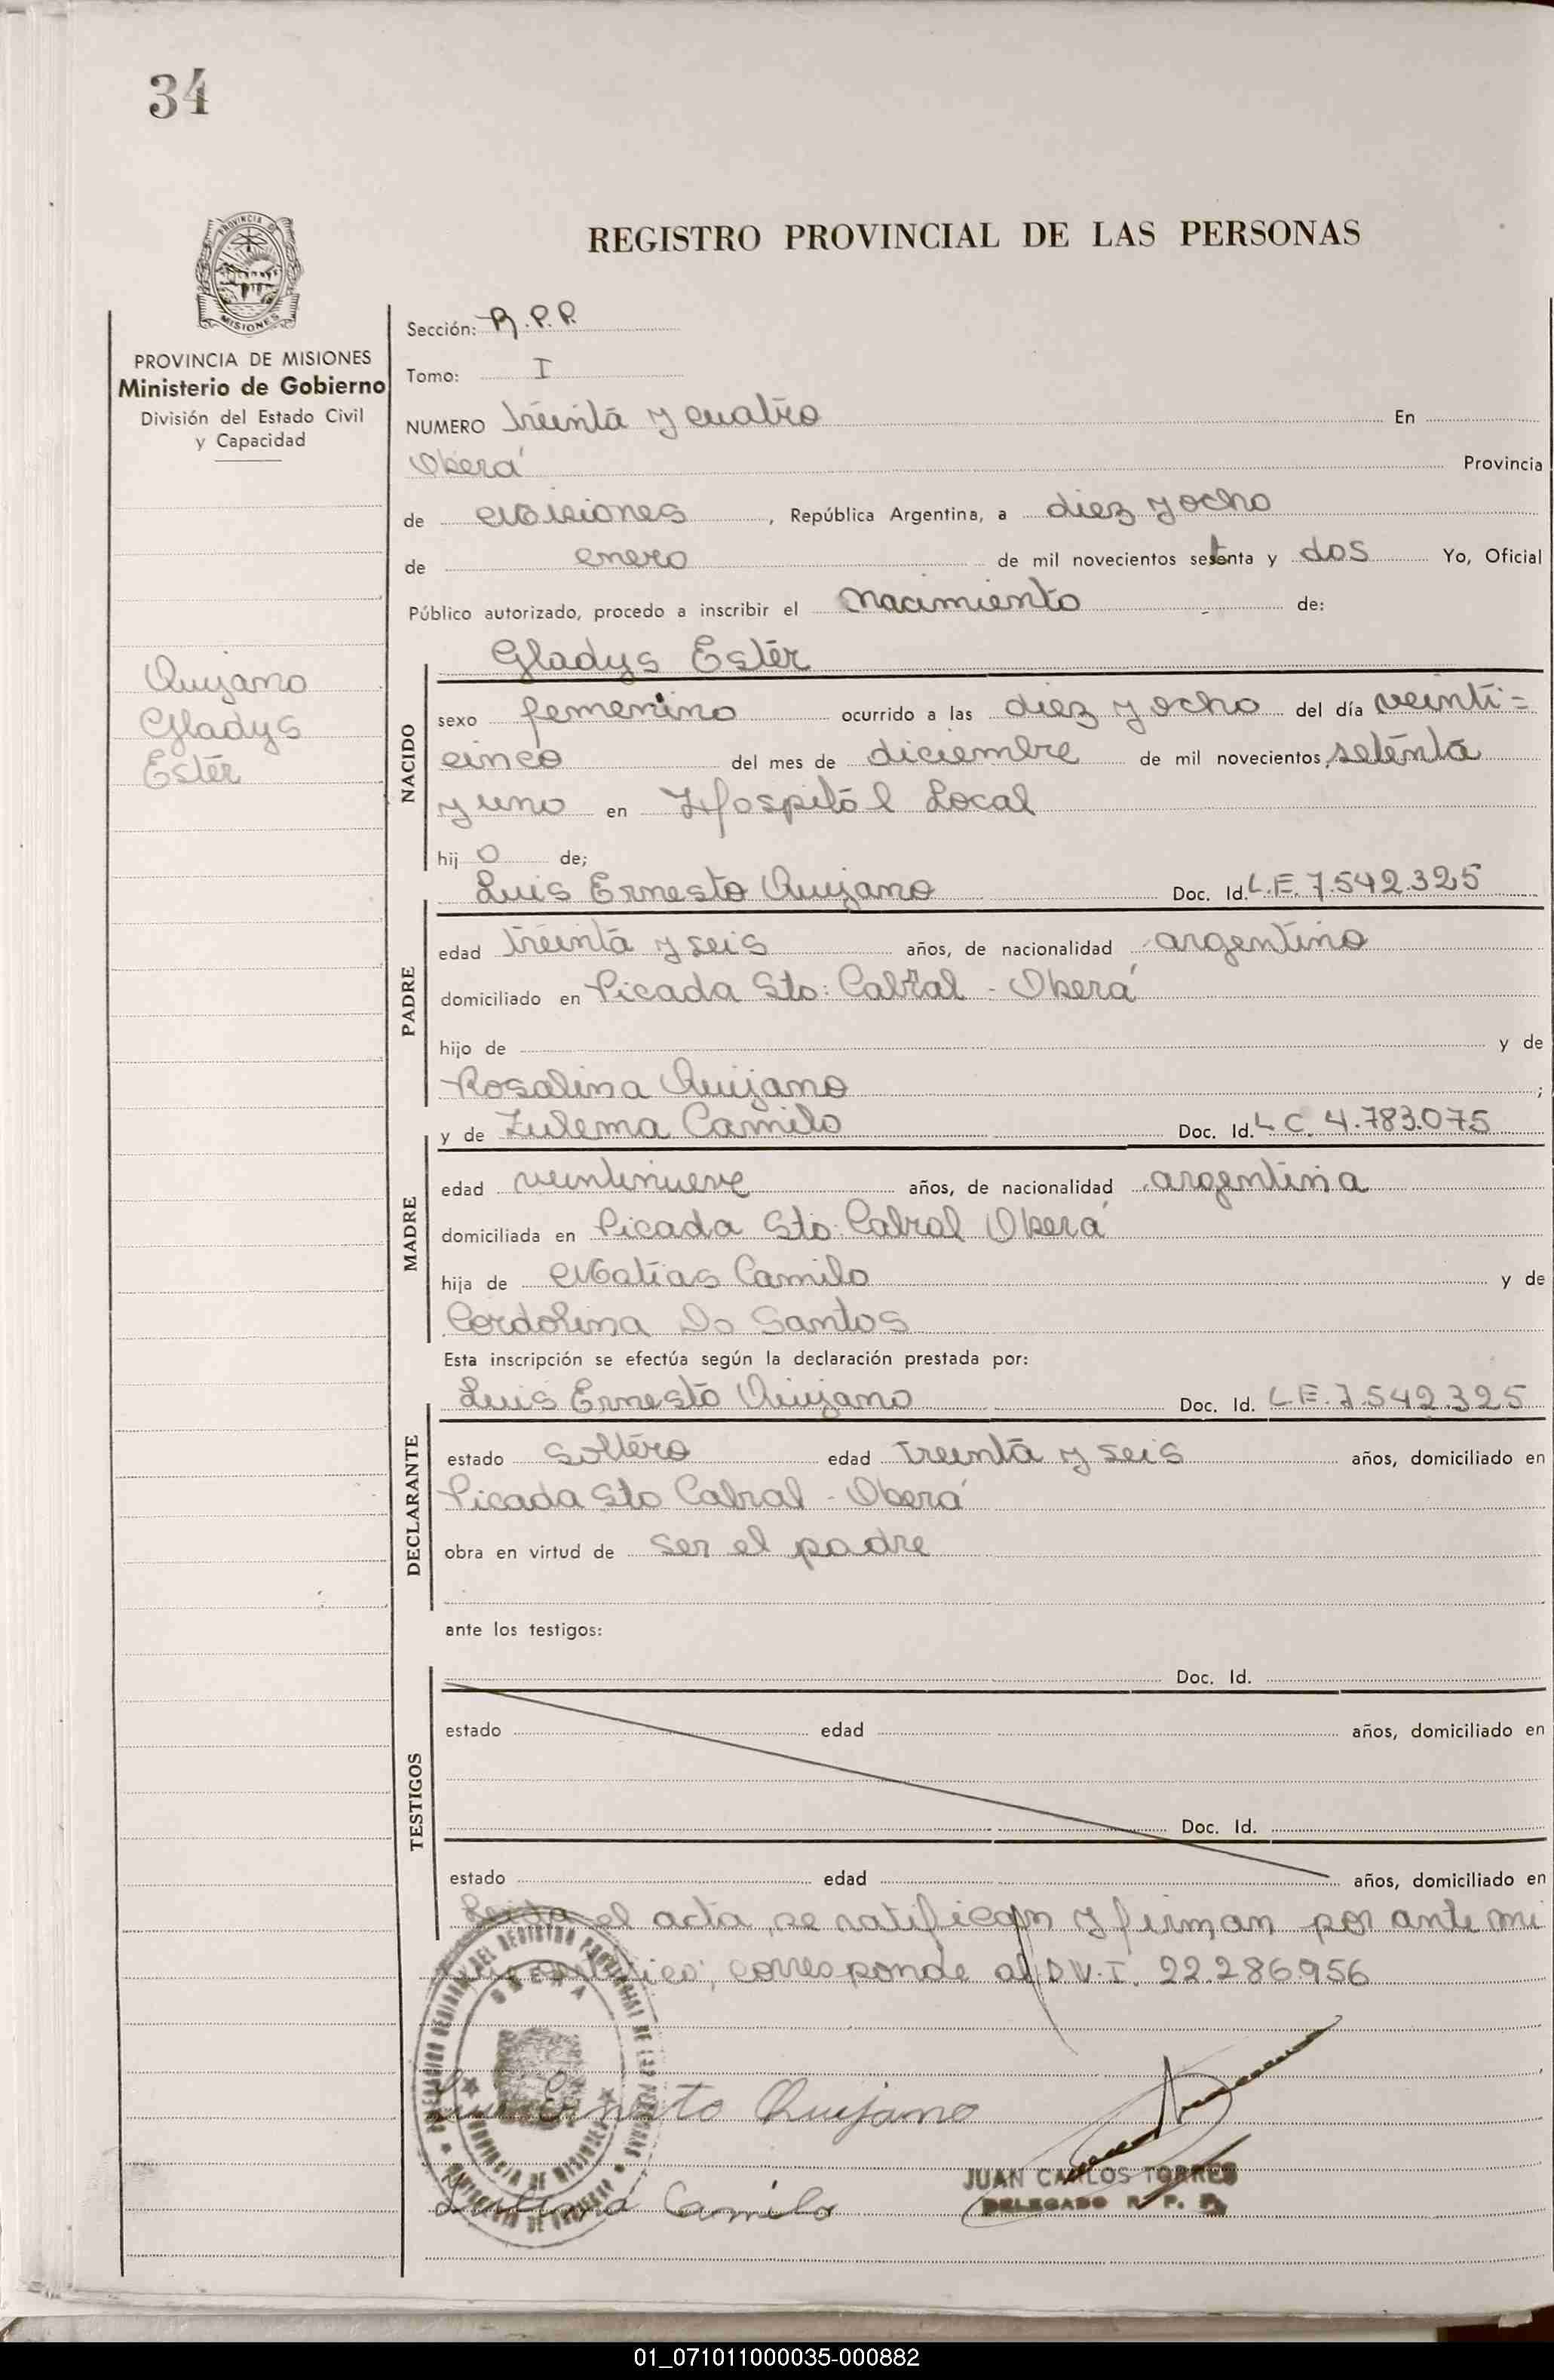 34
REGISTRO PROVINCIAL DE LAS PERSONAS
PROVINCIA
MISIONES
PROVINCIA DE MISIONES
Ministerio de Gobierno
División del Estado Civil
y Capacidad
Quijano
Gladys
Ester
Sección: R.P.P.
Tomo: I
NUMERO treinta y cuatro En
Oberá Provincia
de Misiones, República Argentina, a diez y ocho
de enero de mil novecientos setenta y dos Yo, Oficial
Público autorizado, procedo a inscribir el nacimiento de:
Gladys Ester
NACIDO
sexo femenino ocurrido a las diez y ocho del día veinti=
cinco del mes de diciembre de mil novecientos setenta
y uno en Hospital Local
hij o de;
Luis Ernesto Quijano Doc. Id. L.E. 7.542.325
PADRE
edad treinta y seis años, de nacionalidad argentino
domiciliado en Picada Sto: Cabral - Oberá
hijo de y de
Rosalina Quijano ;
y de Zulema Camilo Doc. Id. L C. 4.783.075
MADRE
edad veintinueve años, de nacionalidad argentina
domiciliada en Picada Sto: Cabral Oberá
hija de Matías Camilo y de
Cordolina Do Santos
Esta inscripción se efectúa según la declaración prestada por:
Luis Ernesto Quijano Doc. Id. L.E. 7.542.325
DECLARANTE
estado soltero edad treinta y seis años, domiciliado en
Picada Sto Cabral - Oberá
obra en virtud de ser el padre
ante los testigos:
Doc. Id.
TESTIGOS
estado edad años, domiciliado en
Doc. Id.
estado edad años, domiciliado en
Leida el acta, se ratifican y firman por ante mi
corresponde al D.N.I. 22.286.956
OBERA
PROVINCIA DE MISIONES
Luis Ernesto Quijano
JUAN CARLOS TORRES
DELEGADO R. P. P.
Zulema Camilo
01_071011000035-000882